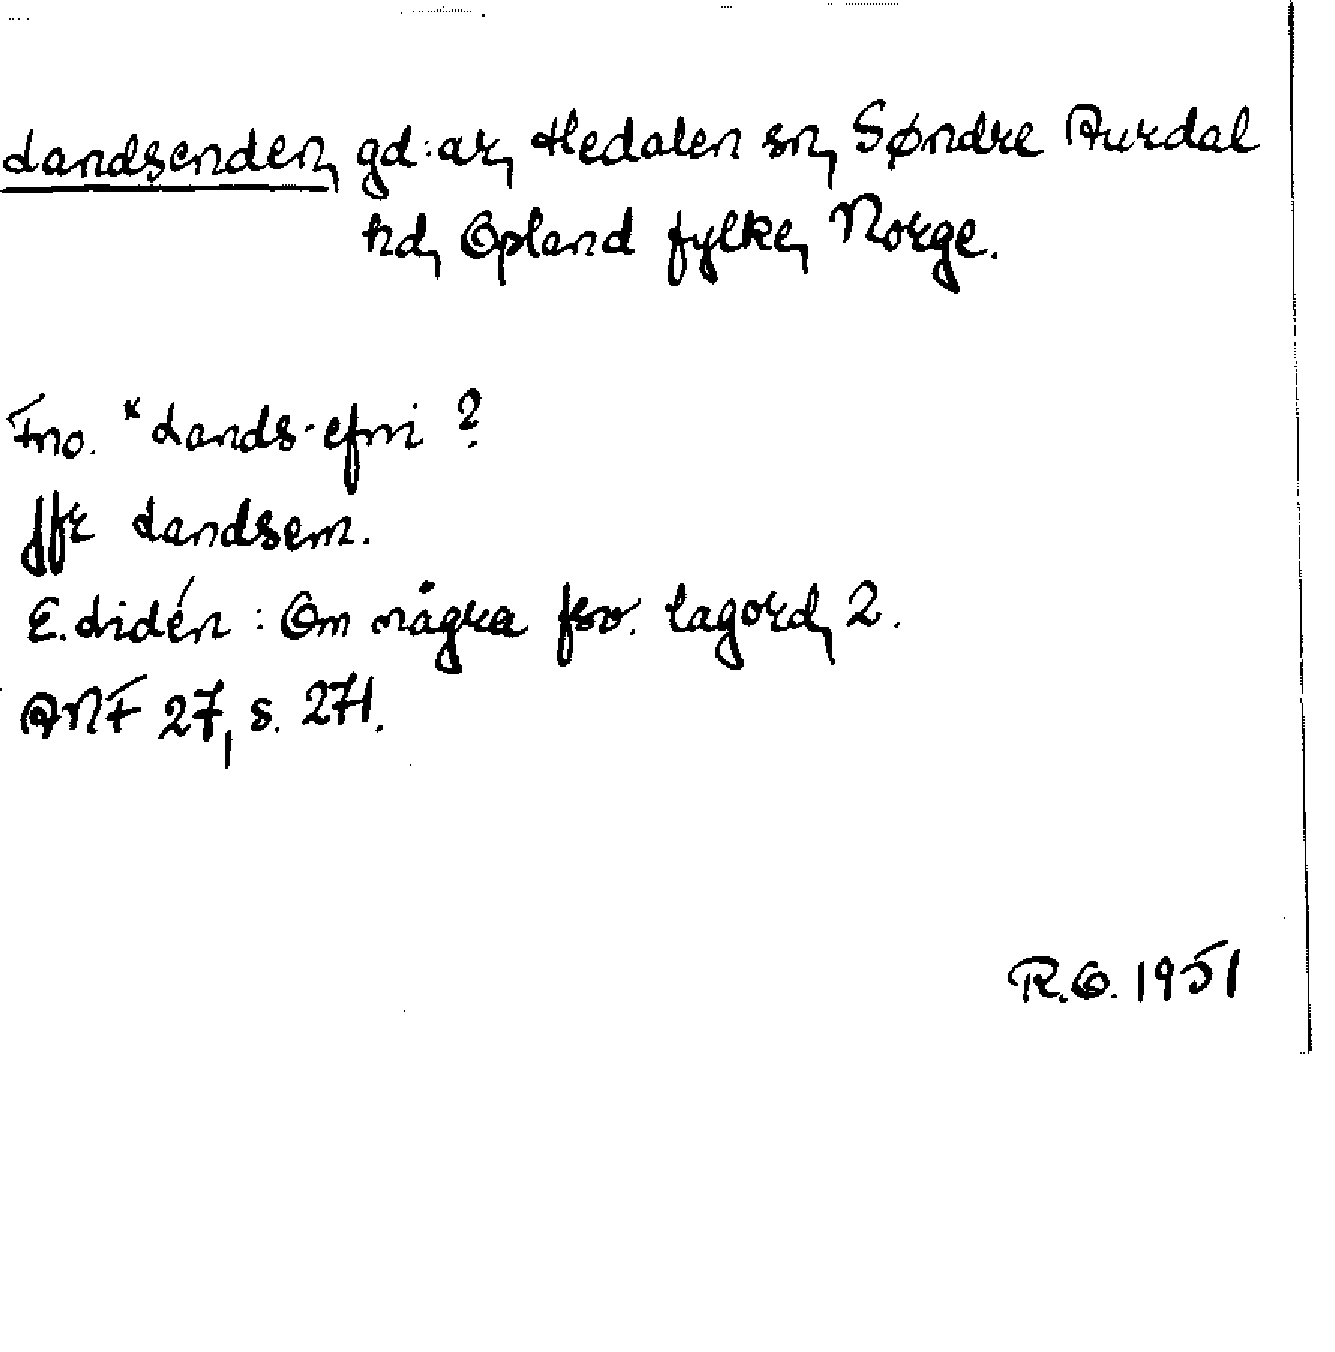 Landsenden, gd:ar, Hedalen sn, Søndre Aurdal
hd, Opland fylke, Norge.
Fno. *Lands-efni ?
Jfr Landsem.
E. Lidén : Om några fsv. lagord, 2.
ANF 27, s. 271.
R.O. 1951